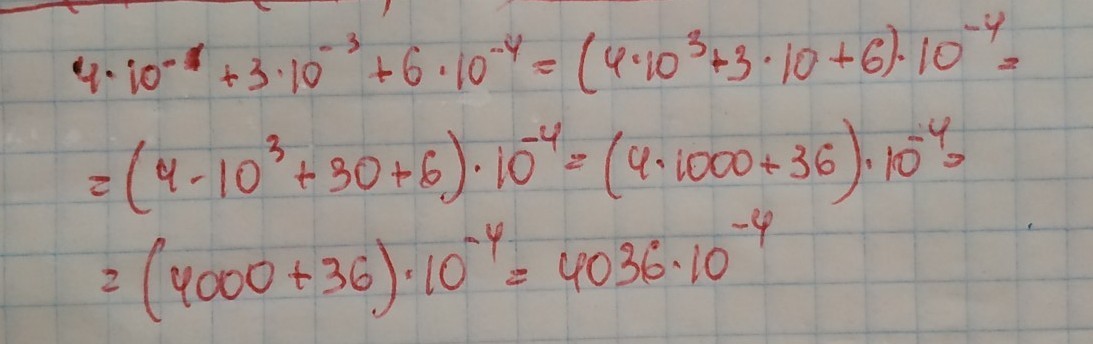 4·10⁻¹ + 3·10⁻³ + 6·10⁻⁴ = (4·10³ + 3·10 + 6)·10⁻⁴ =
= (4·10³ + 30 + 6)·10⁻⁴ = (4·1000 + 36)·10⁻⁴ =
= (4000 + 36)·10⁻⁴ = 4036·10⁻⁴